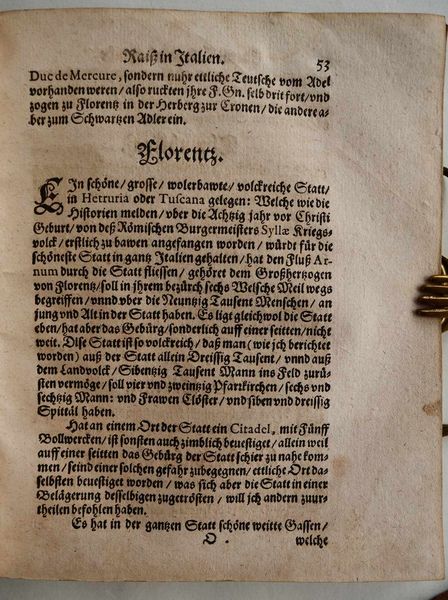 Raiß in Italien. 53
Duc de Mercure, sondern nuhr ettliche Teutsche vom Adel
vorhanden weren / also ruckten jhre F. Gn. selb drit fort / vnd
zogen zu Florentz in der Herberg zur Cronen / die andere a-
ber zum Schwartzen Adler ein.
Florentz.
EJn schöne / grosse / wolerbawte / volckreiche Statt /
in Hetruria oder Tuscana gelegen: Welche wie die
Historien melden / vber die Achtzig jahr vor Christi
Geburt / von deß Römischen Burgermeisters Syllæ Kriegs-
volck / erstlich zu bawen angefangen worden / würdt für die
schöneste Statt in gantz Italien gehalten / hat den Fluß Ar-
num durch die Statt fliessen / gehöret dem Großhertzogen
von Florentz / soll in jhrem bezürch sechs Welsche Meil wegs
begreiffen / vnnd vber die Neuntzig Tausent Menschen / an
jung vnd Alt in der Statt haben. Es ligt gleichwol die Statt
eben / hat aber das Gebürg / sonderlich auff einer seitten / nicht
weit. Dise Statt ist so volckreich / daß man (wie jch berichtet
worden) auß der Statt allein Dreissig Tausent / vnnd auß
dem Landvolck / Sibentzig Tausent Mann ins Feld zurü-
sten vermöge / soll vier vnd zweintzig Pfarrkirchen / sechs vnd
sechtzig Mann: vnd Frawen Clöster / vnd siben vnd dreissig
Spittäl haben.
Hat an einem Ort der Statt ein Citadel, mit Fünff
Bollwercken / ist sonsten auch zimblich beuestiget / allein weil
auff einer seitten das Gebürg der Statt schier zu nahe kom-
men / seind einer solchen gefahr zubegegnen / ettliche Ort da-
selbsten beuestiget worden / was sich aber die Statt in einer
Belägerung desselbigen zugetrösten / will jch andern zuur-
theilen befohlen haben.
Es hat in der gantzen Statt schöne weitte Gassen /
O welche